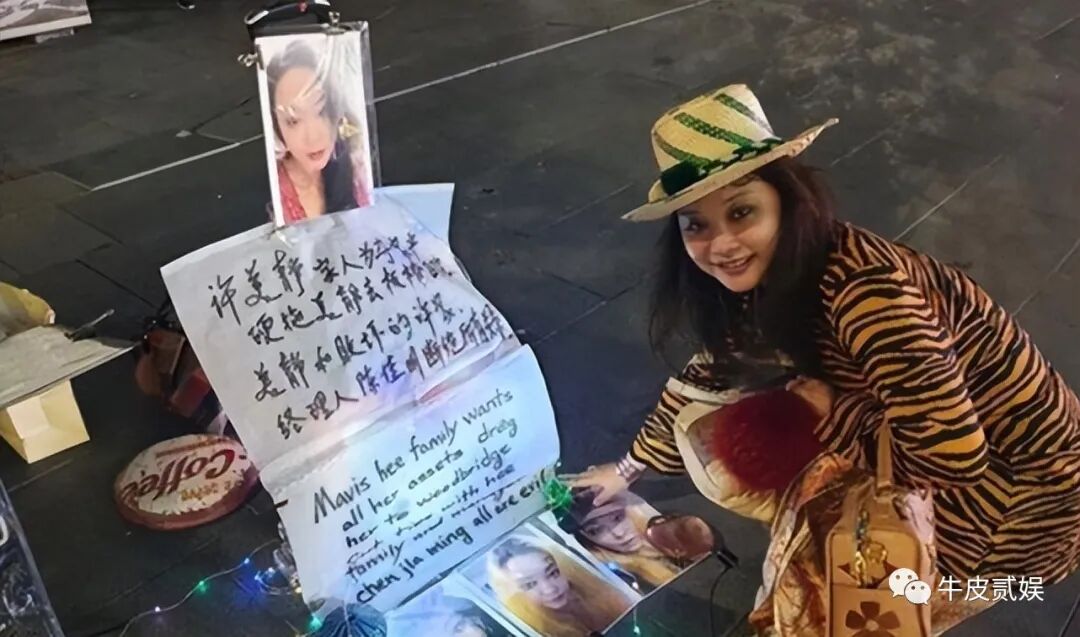 许美静家人为
硬拖美静去板桥医
美静和败坏的许家
经理人陈佳明断绝所有
Mavis hee family wants
all her assets drag
her to woodbridge
cut ties with hee
family and manager
chen jia ming all are evil
Coffee
牛皮贰娱